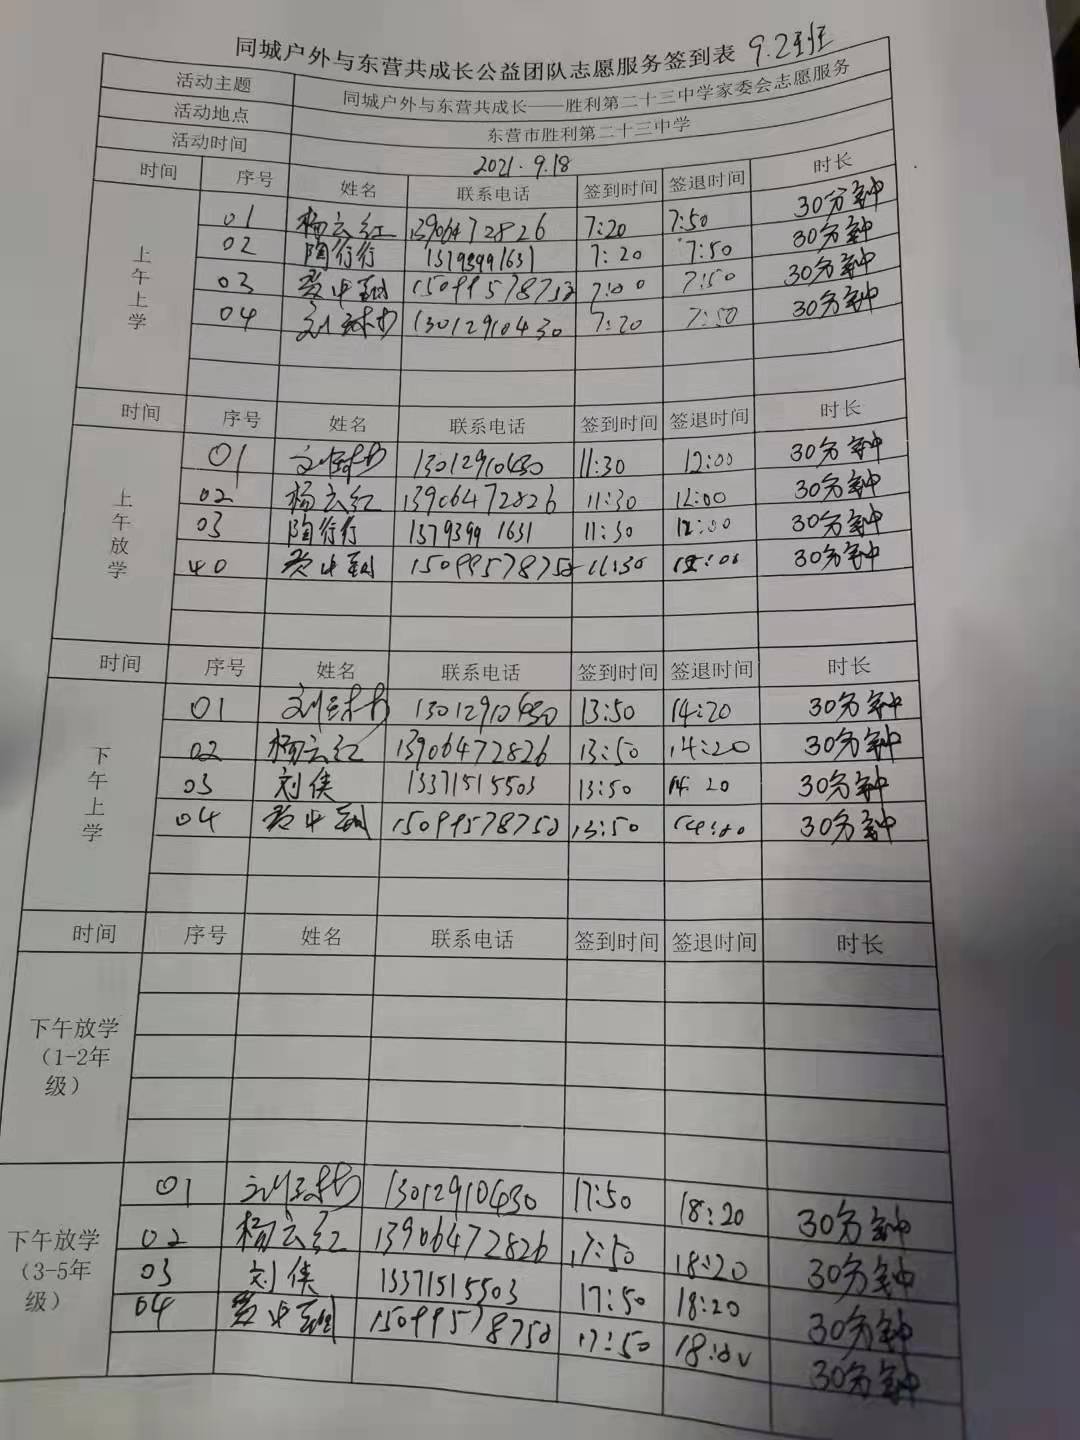 同城户外与东营共成长公益团队志愿服务签到表 9.2班
活动主题 同城户外与东营共成长——胜利第二十三中学家委会志愿服务
活动地点 东营市胜利第二十三中学
活动时间 2021.9.18
时间 序号 姓名 联系电话 签到时间 签退时间 时长
上午上学
01 杨云红 13906472826 7:20 7:50 30分钟
02 陶行行 13793991631 7:20 7:50 30分钟
03 15099578752 7:00 7:50 30分钟
04 刘 13012910430 7:20 7:50 30分钟
时间 序号 姓名 联系电话 签到时间 签退时间 时长
上午放学
01 刘 13012910430 11:30 12:00 30分钟
02 杨云红 13906472826 11:30 12:00 30分钟
03 陶行行 13793991631 11:30 12:00 30分钟
40 1509957875 11:30 12:00 30分钟
时间 序号 姓名 联系电话 签到时间 签退时间 时长
下午上学
01 刘 13012910430 13:50 14:20 30分钟
02 杨云红 13906472826 13:50 14:20 30分钟
03 刘侠 13371515503 13:50 14 20 30分钟
04 1509957875 13:50 30分钟
时间 序号 姓名 联系电话 签到时间 签退时间 时长
下午放学（1-2年级）
下午放学（3-5年级）
01 刘 13012910430 17:50 18:20 30分钟
02 杨云红 13906472826 17:50 18:20 30分钟
03 刘侠 13371515503 17:50 18:20 30分钟
04 1509957875 17:50 30分钟